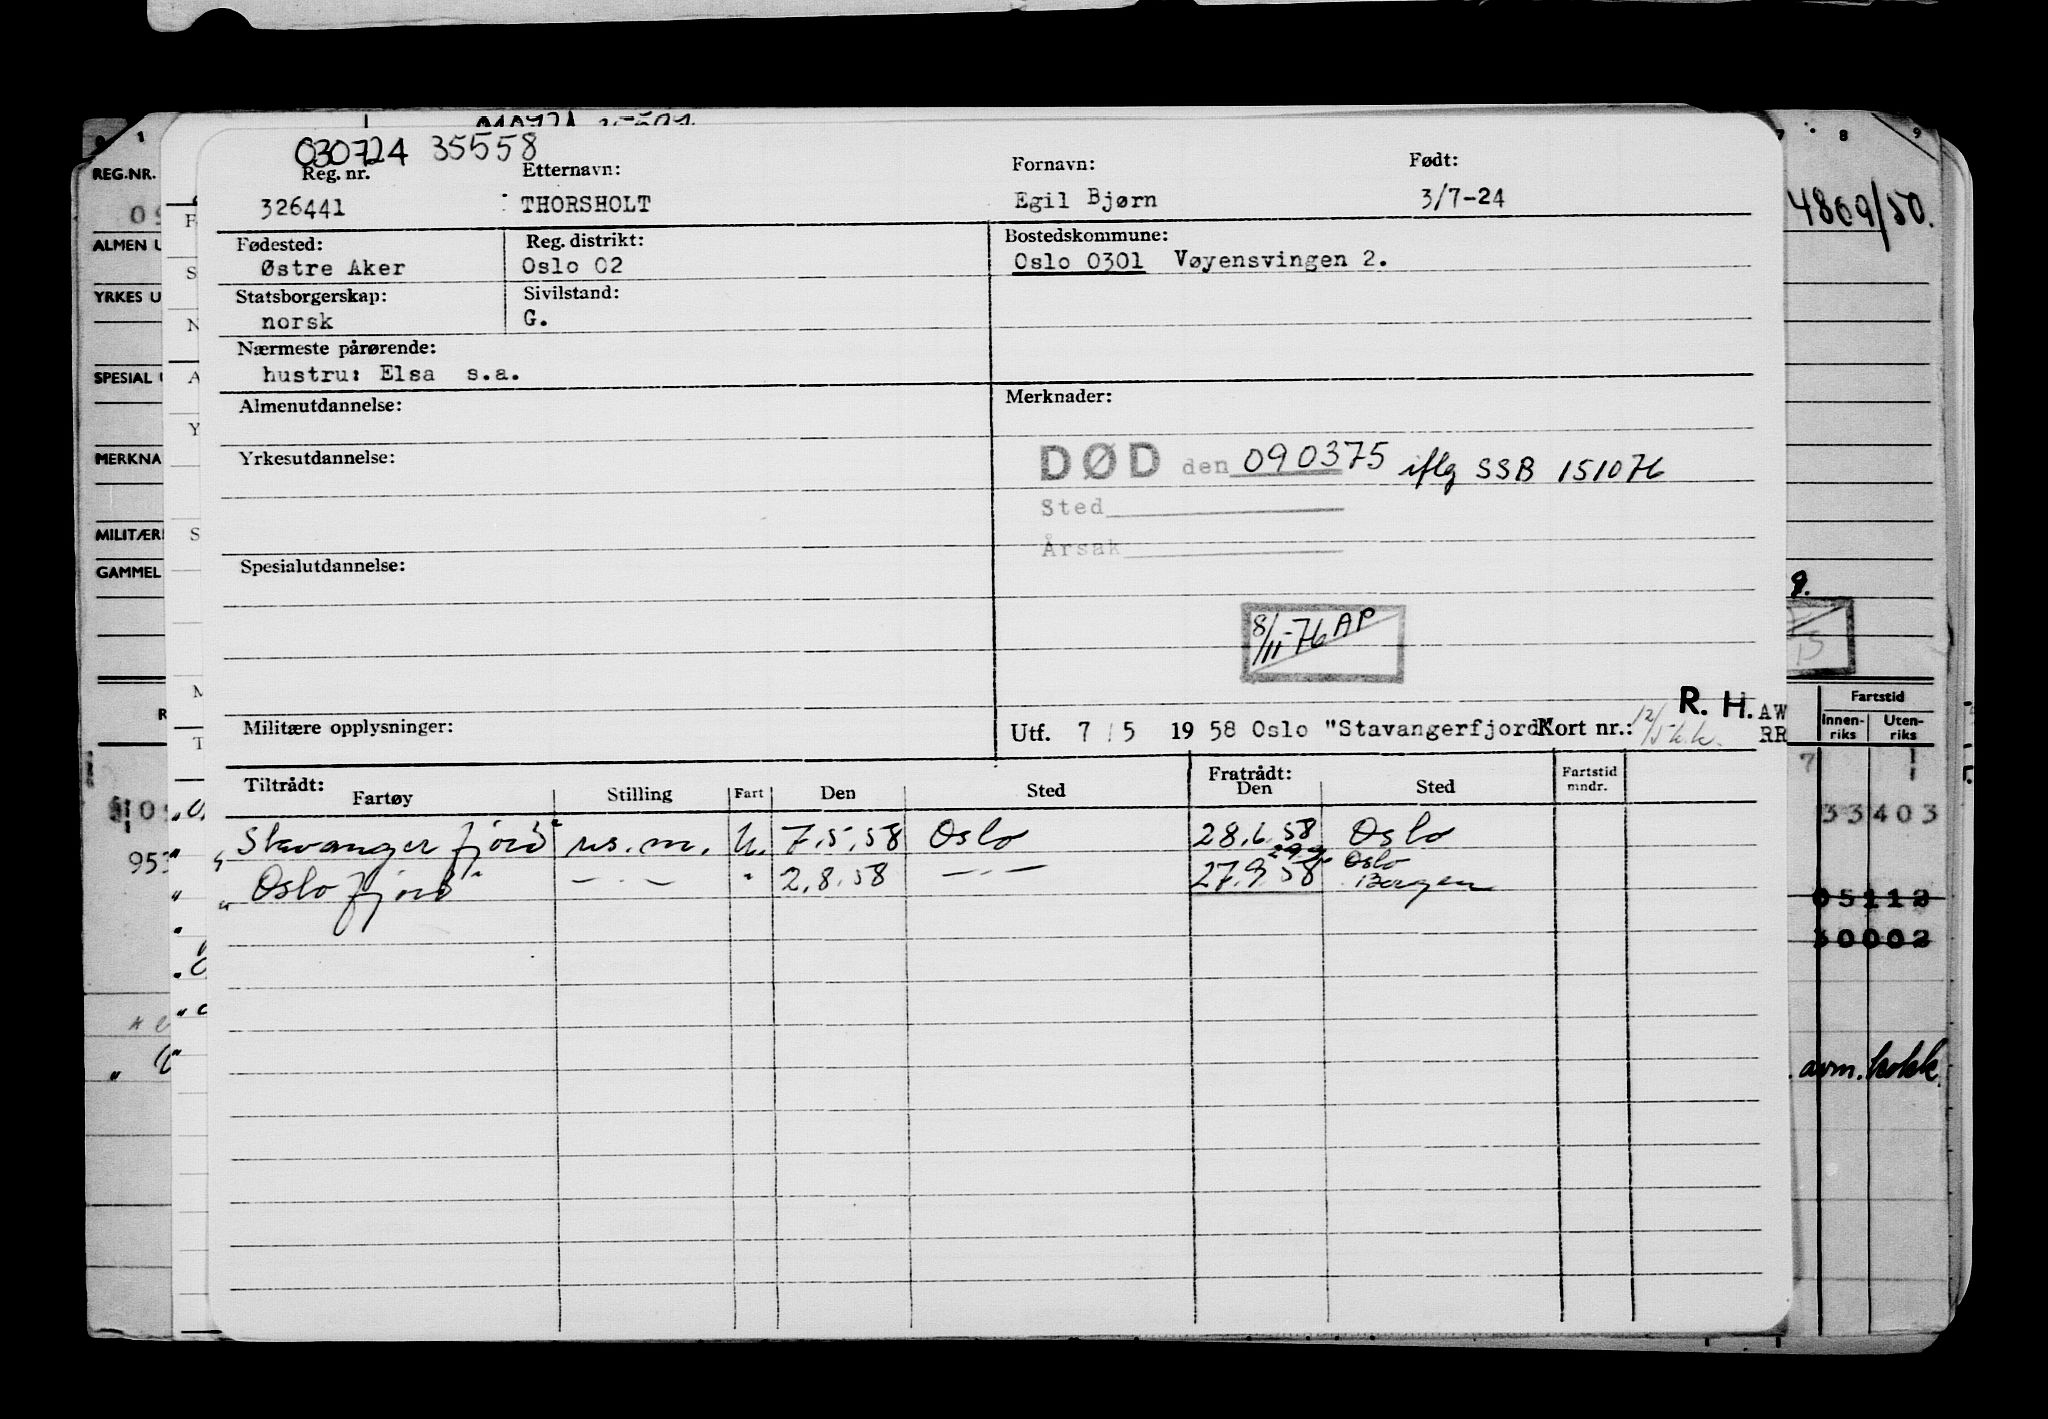 030724 35558
Reg. nr. Etternavn: Fornavn: Født:
326441 THORSHOLT Egil Bjørn 3/7-24
Fødested: Reg. distrikt: Bostedskommune:
Østre Aker Oslo 02 Oslo 0301 Vøyensvingen 2.
Statsborgerskap: Sivilstand:
norsk G.
Nærmeste pårørende:
hustru: Elsa s.a.
Almenutdannelse: Merknader:
Yrkesutdannelse: DØD den 090375 iflg SSB 151076
Sted
Årsak
Spesialutdannelse:
8/11-76 AP
R. H.
Militære opplysninger: Utf. 7/5 1958 Oslo "Stavangerfjord" Kort nr.: 12/5 k.k.
Tiltrådt: Fratrådt:
Fartøy Stilling Fart Den Sted Den Sted Fartstid mndr.
"Stavangerfjord" us.m. U. 7.5.58 Oslo 28.6.58 Oslo
29.9 Oslo
"Oslofjord" — . — " 2.8.58 — . — 27.9.58 Bergen
REG.NR.
ALMEN U
YRKES U
SPESIAL U
MERKNA
MILITÆR
GAMMEL
953
7 8 9
4869/50.
9.
AW
RR
Fartstid
Innen-riks Uten-riks
7
33403
05112
30002
avm. kokk.